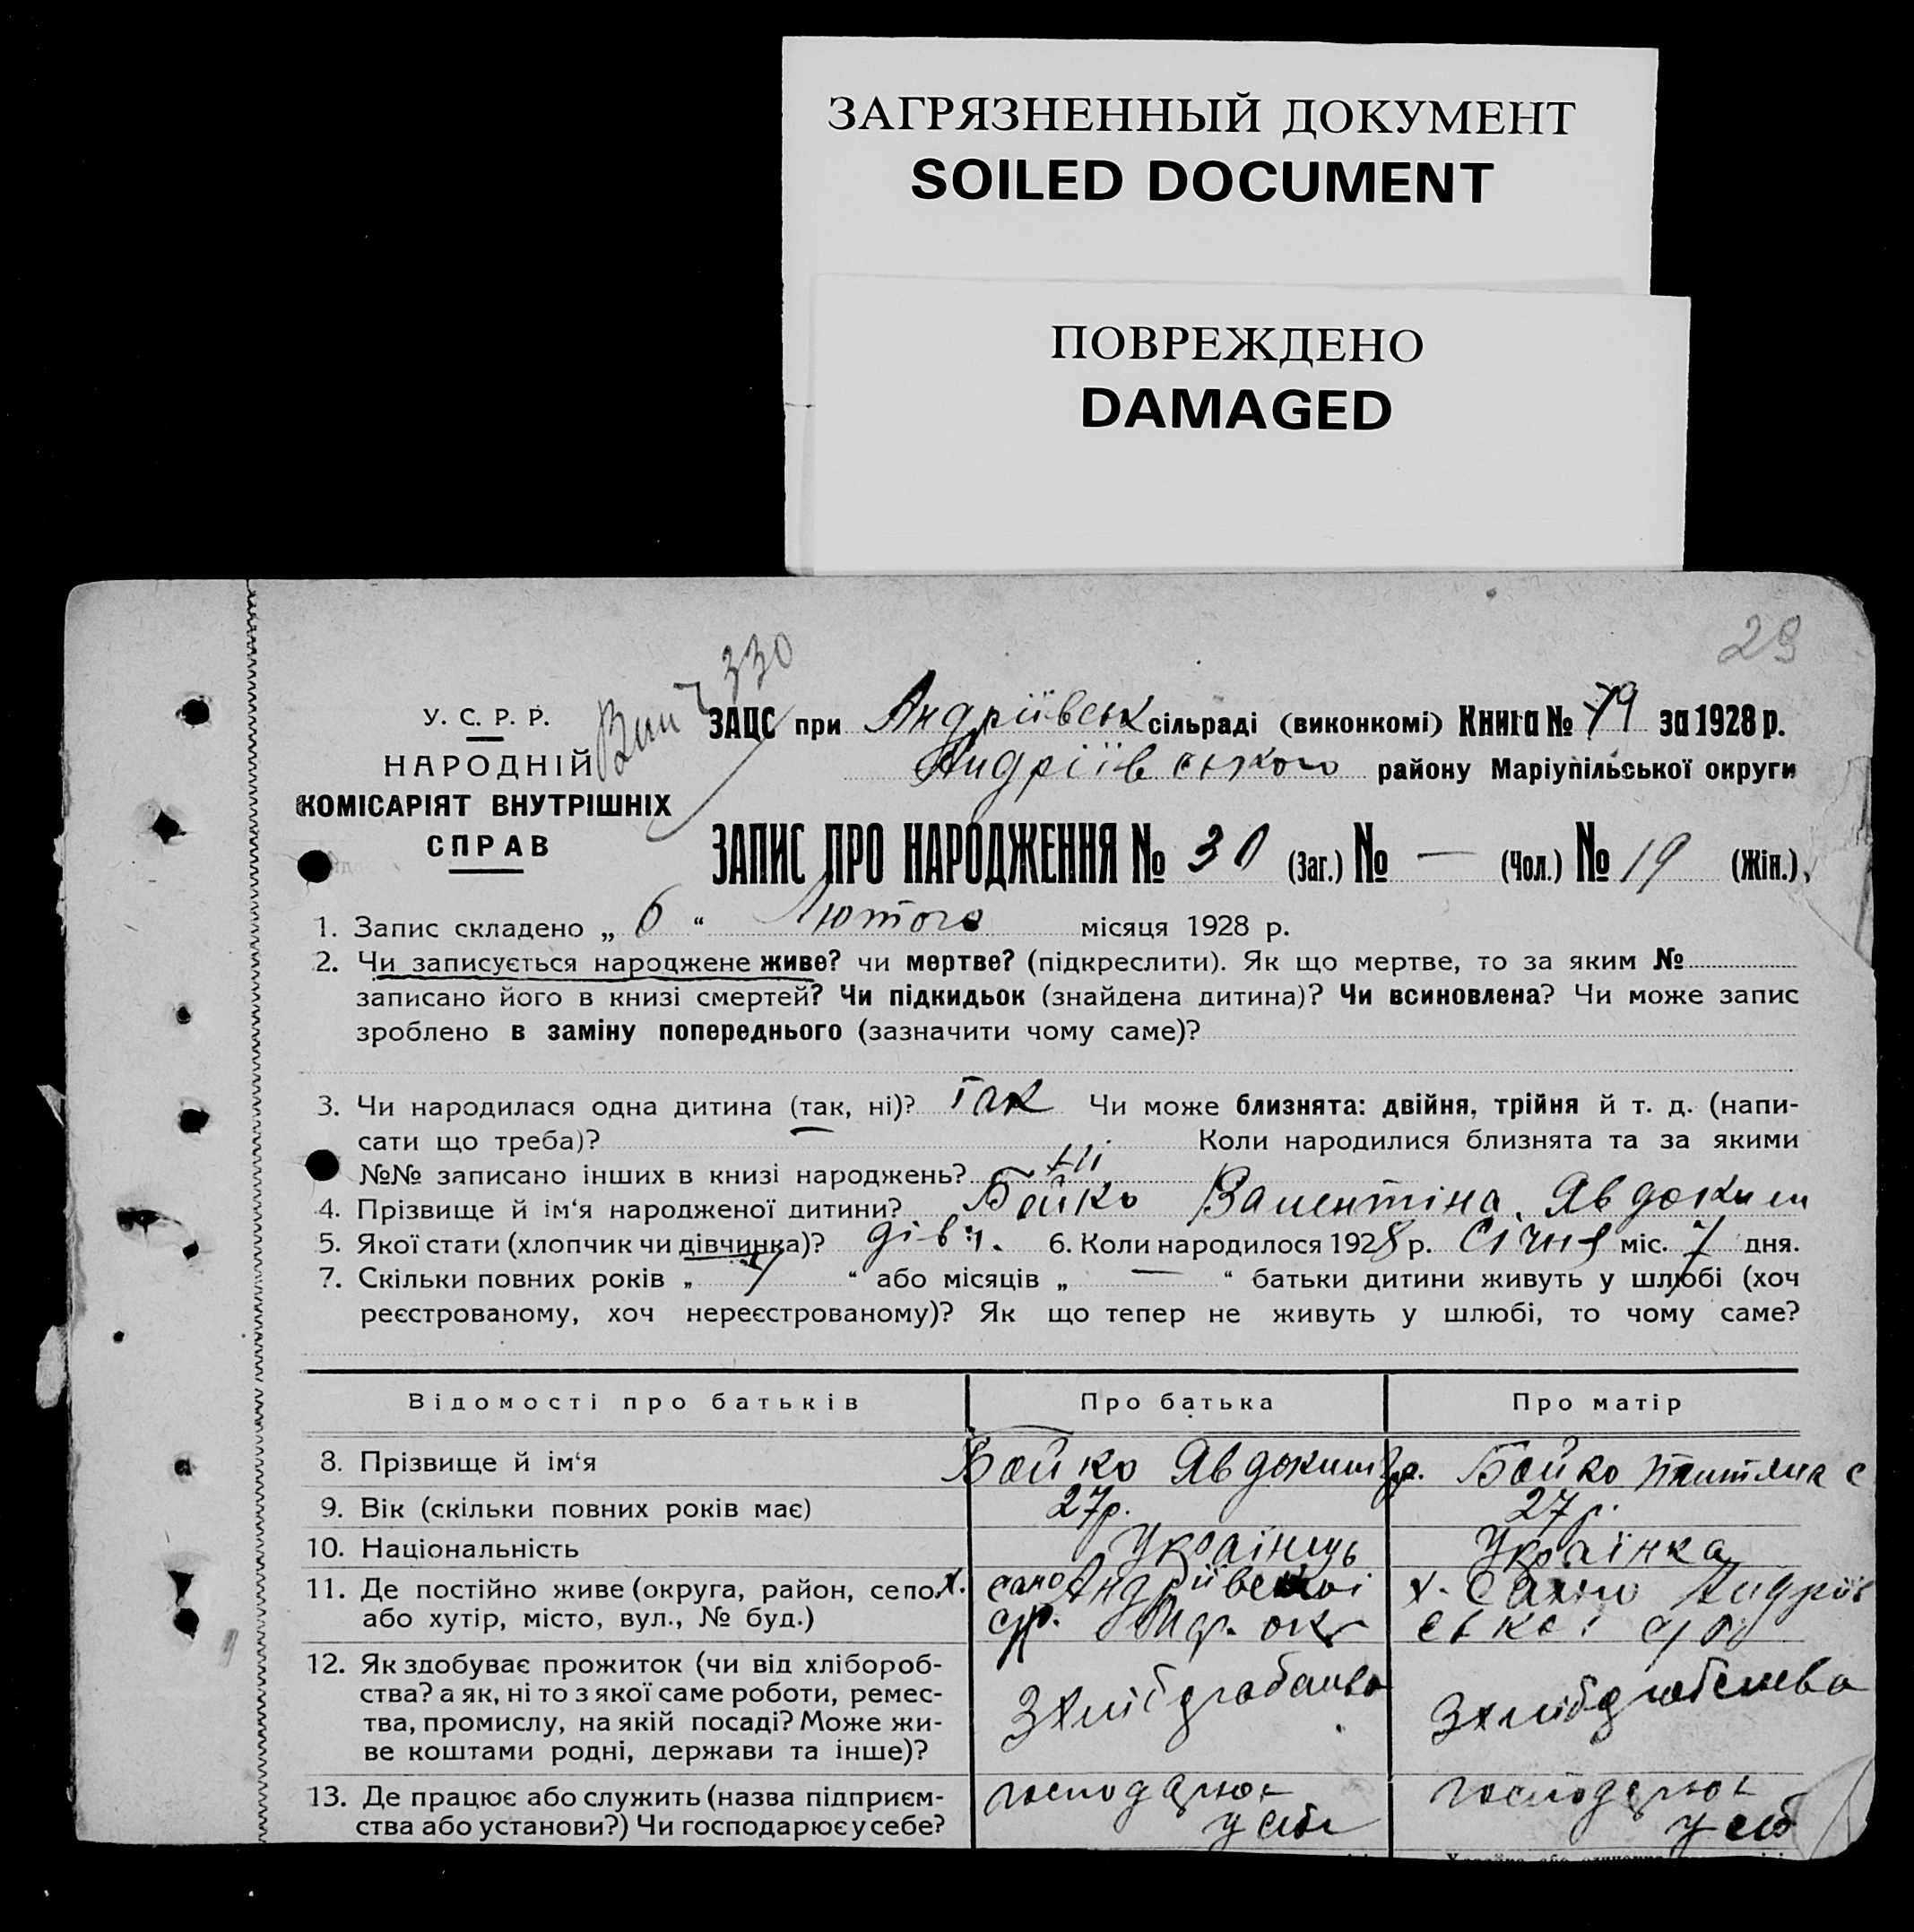 ЗАГРЯЗНЕННЫЙ ДОКУМЕНТ
SOILED DOCUMENT
ПОВРЕЖДЕНО
DAMAGED
29
330
У. С. Р. Р.
НАРОДНІЙ
КОМІСАРІЯТ ВНУТРІШНІХ
СПРАВ
ЗАЦС при Андріївськ сільраді (виконкомі) Книга № 79 за 1928 р.
Андріївського району Маріупільської округи
ЗАПИС ПРО НАРОДЖЕННЯ № 30 (Заг.) № — (Чол.) № 19 (Жін.)
1. Запис складено „ 6 “ Лютого місяця 1928 р.
2. Чи записується народжене живе? чи мертве? (підкреслити). Як що мертве, то за яким №
записано його в книзі смертей? Чи підкидьок (знайдена дитина)? Чи всиновлена? Чи може запис
зроблено в заміну попереднього (зазначити чому саме)?
3. Чи народилася одна дитина (так, ні)? Так Чи може близнята: двійня, трійня й т. д. (напи-
сати що треба)? Коли народилися близнята та за якими
№№ записано інших в книзі народжень? Ні
4. Прізвище й ім‘я народженої дитини? Бойко Валентіна Явдоким
5. Якої стати (хлопчик чи дівчинка)? дівч. 6. Коли народилося 1928 р. Січня міс. 7 дня.
7. Скільки повних років „ 7 “ або місяців „ — “ батьки дитини живуть у шлюбі (хоч
реєстрованому, хоч нереєстрованому)? Як що тепер не живуть у шлюбі, то чому саме?
Відомості про батьків Про батька Про матір
8. Прізвище й ім‘я Бойко Явдоким Бойко
9. Вік (скільки повних років має) 27 р. 27 р.
10. Національність Українець Українка
11. Де постійно живе (округа, район, село х. Андріївської х. Андріїв
або хутір, місто, вул., № буд.) с/р. окр ської с/р
12. Як здобуває прожиток (чи від хлібороб-
ства? а як, ні то з якої саме роботи, ремес-
тва, промислу, на якій посаді? Може жи-
ве коштами родні, держави та інше)?
З хліборобства З хліборобства
13. Де працює або служить (назва підприєм- господарює господарює
ства або установи?) Чи господарює у себе? у себе у себ